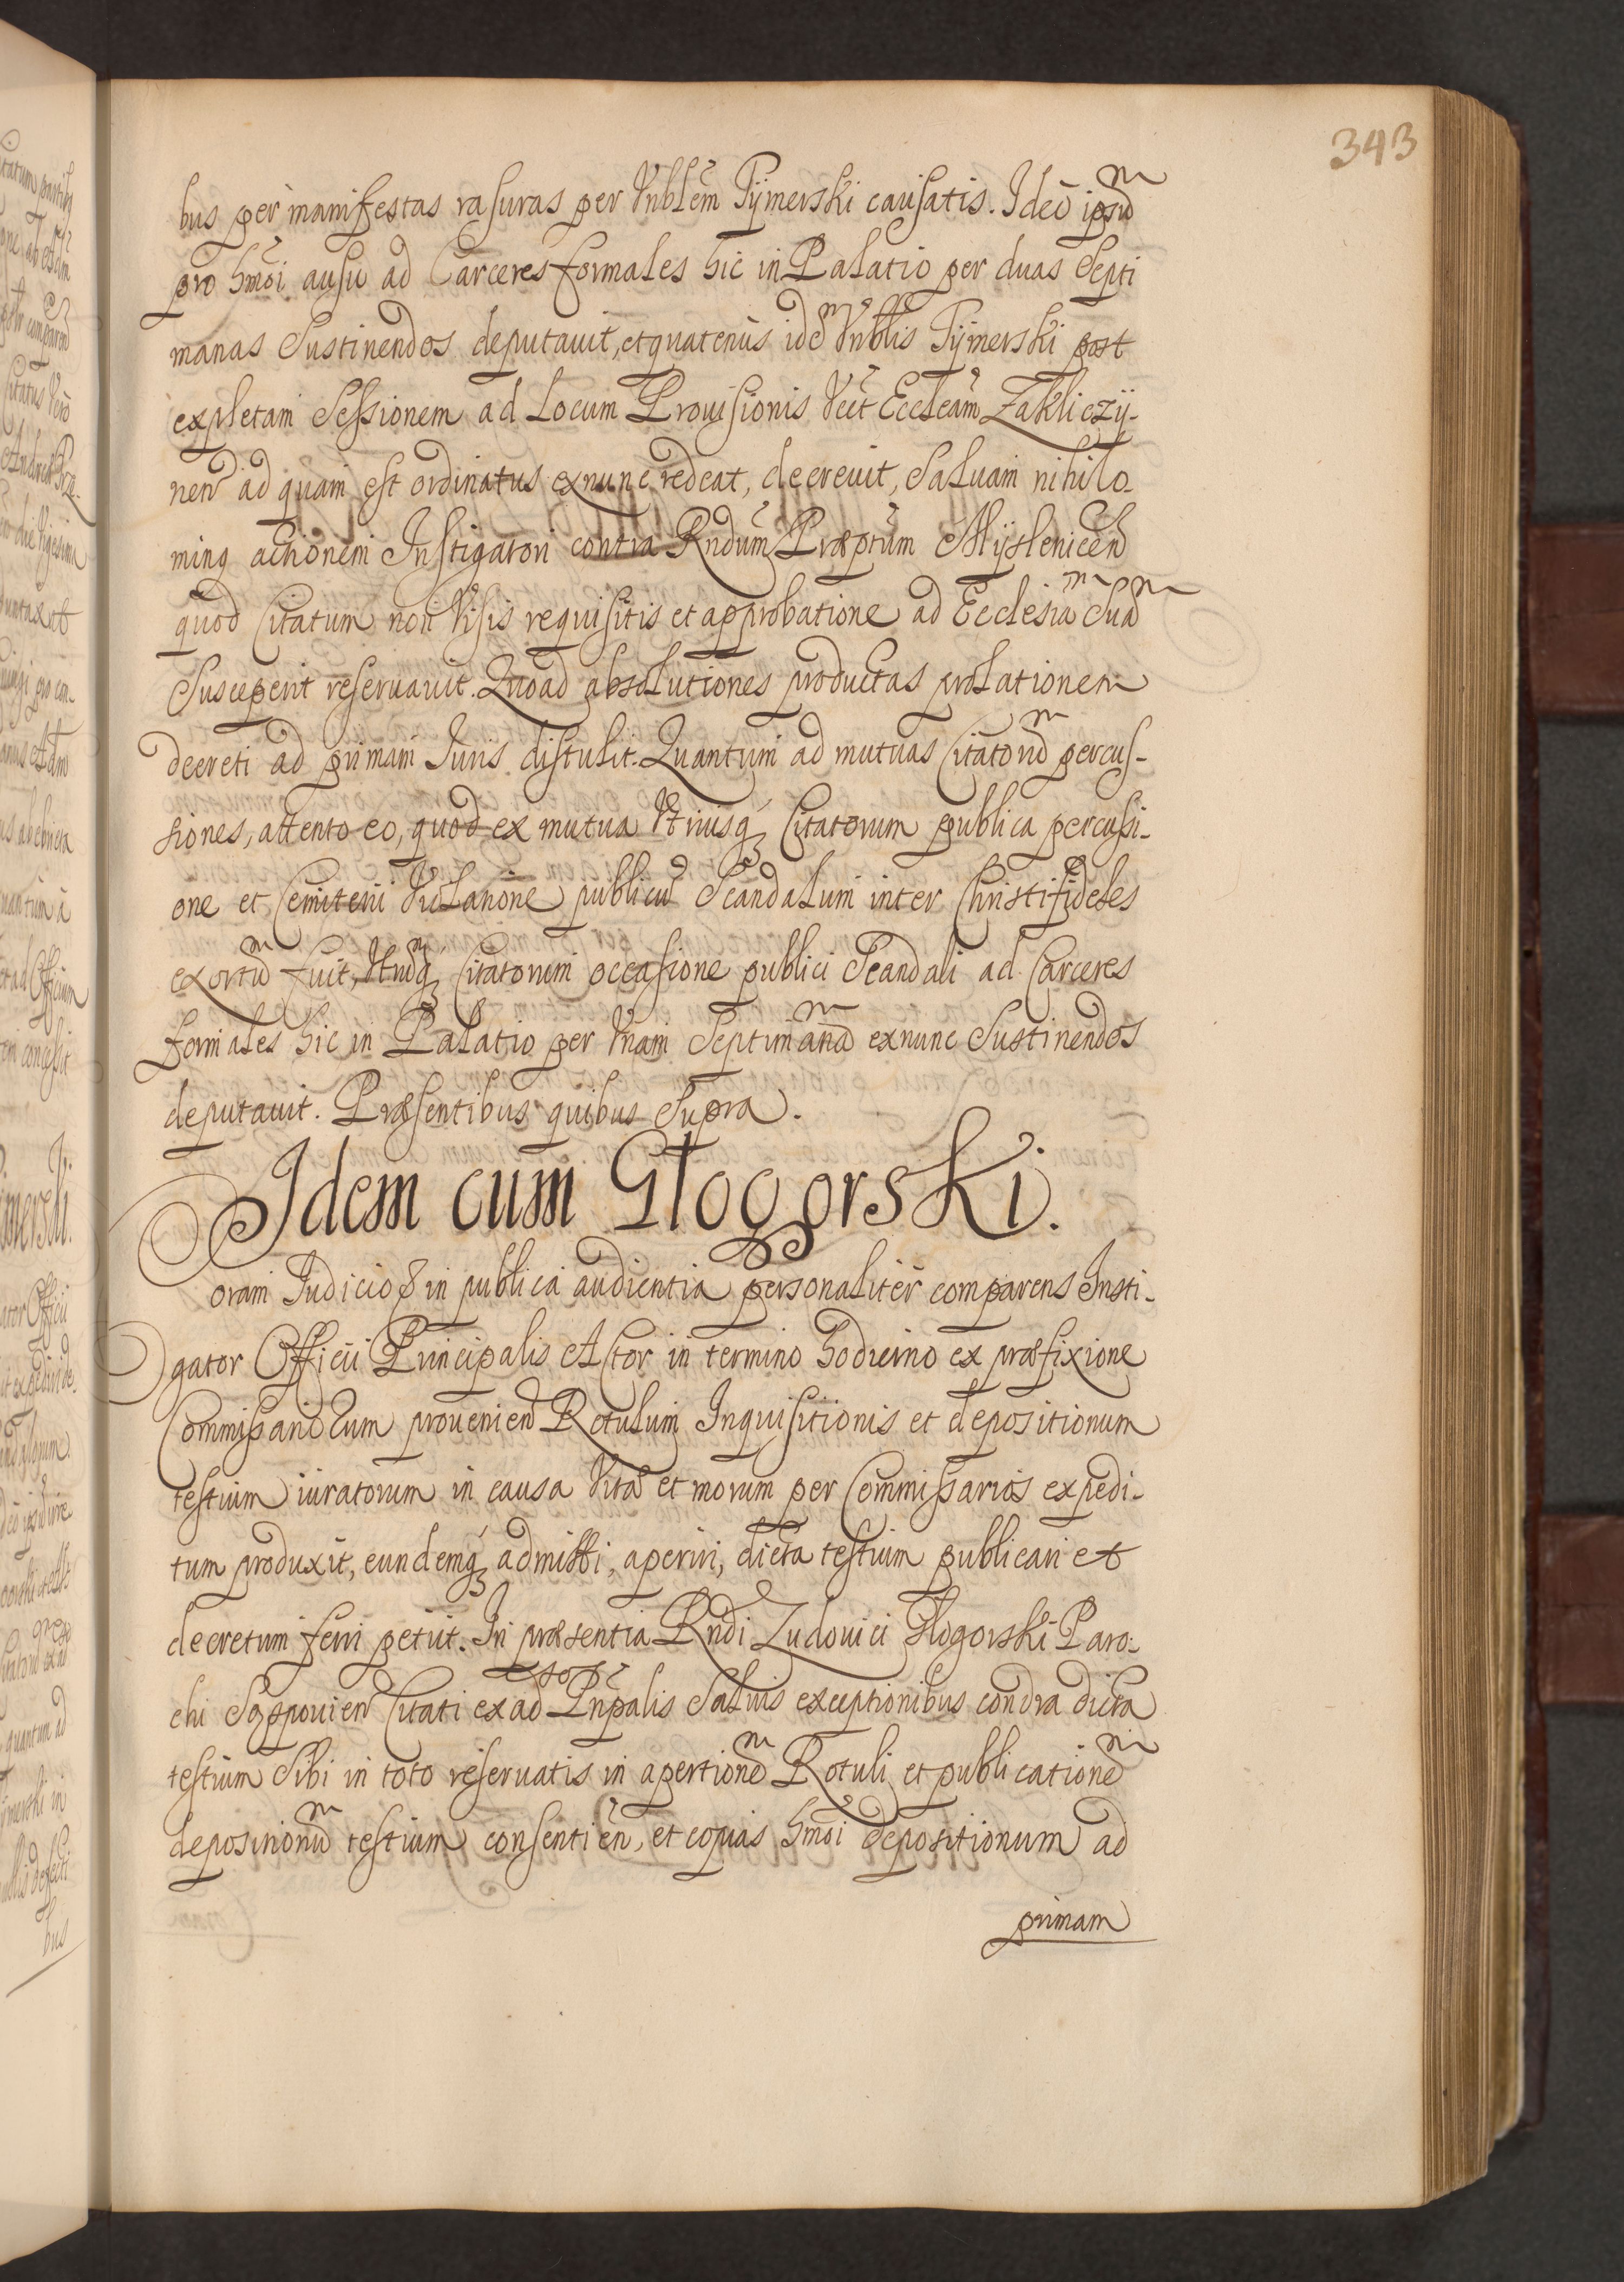 343
bus per manifestas rasuras per Vnblem Tymerski causatis. Ideo ipsum
pro hmoi ausu ad Carceres formales hic in Palatio per duas Septi
manas Sustinendos deputauit, et quatenus idem Vnblis Tymerski post
expletam Sessionem ad Locum Prouisionis Vctt Eccleam Zakliczy-
nen ad quam est ordinatus exnunc redeat, decreuit, Saluam nihilo-
minq actionem Instigatori contra Rndum Præptum Myslenicen
quod Citatum non Visis requisitis et approbatione ad Ecclesiam Suam
Susceperit reseruauit. Quoad absolutiones productas prolationem
decreti ad primam Juris distulit. Quantum ad mutuas Citatorum percus-
siones, attento eo, quod ex mutua Vtriusq Citatorum publica percussi-
one et Cemiterii Violatione publicum Scandalum inter Christifideles
exortum fuit, Vtrumq Citatorum occasione publici Scandali ad Carceres
formales hic in Palatio per Vnam Septimanam exnunc Sustinendos
deputauit. Præsentibus quibus Supra.
Idem cum Głogorski.
oram Judicio in publica audientia personaliter comparens Insti-
gator Officii Principalis Actor in termino hodierno ex præfixione
Commissariorum prouenien Rotulum Inquisitionis et depositionum
testium iuratorum in causa Vitæ et morum per Commissarios expedi-
tum produxit, eundemq admitti, aperiri, dicta testium publicari et
decretum ferri petiit. In præsentia Rndi Ludouici Głogorski Paro-
chi Citati ex ad Prnpalis Saluis exceptionibus contra dicta
testium Sibi in toto reseruatis in apertionem Rotuli et publicationem
depositionum testium consentien, et copias hmoi depositionum ad
primam